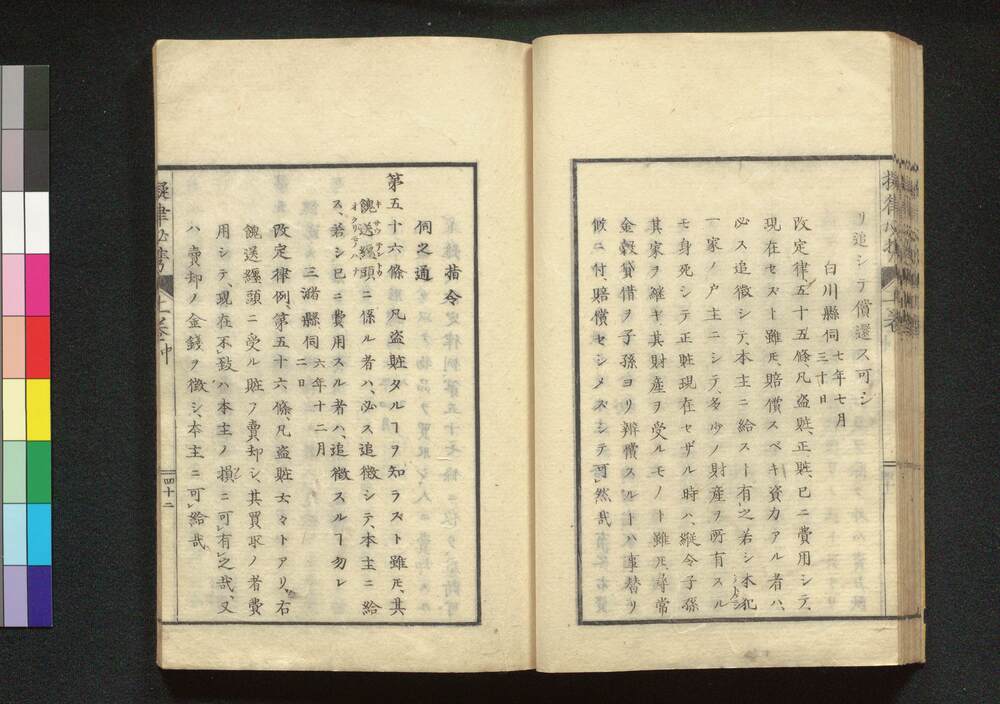 リ追シテ償還ス可シ
白川縣伺 七年七月三十日
改定律、五十五條、凡盗賍、正賍、已ニ費用シテ、
現在セズト雖𪜈、賠償スベキ資力アル者ハ、
必ス追徴シテ、本主ニ給スト有之若シ本犯
一家ノ戸主ニシテ、多少ノ財産ヲ所有スル
モ身死シテ正賍現在セザル時ハ、縦令子孫
其家ヲ継ギ其財産ヲ受ルモノト雖𪜈、尋常
金穀貸借ヲ子孫ヨリ辨償スルトハ事替リ
候ニ付、賠償セシメズシテ可然哉
指令
伺之通
第五十六條凡盗賍タルヿヲ知ラスト雖𪜈、其
餽送纒頭ニ係ル者ハ、必ス追徴シテ、本主ニ給
ス、若シ已ニ費用スル者ハ、追徴スルヿ勿レ
三潴縣伺 六年十二月二日
改定律例、第五十六條、凡盗賍云々トアリ、右
餽送纒頭ニ受ル賍ヲ賣却シ、其買取ノ者費
用シテ、現在不致ハ本主ノ損ニ可有之哉、又
ハ賣却ノ金錢ヲ徴シ、本主ニ可給哉、
擬律必携 上巻中
四十二